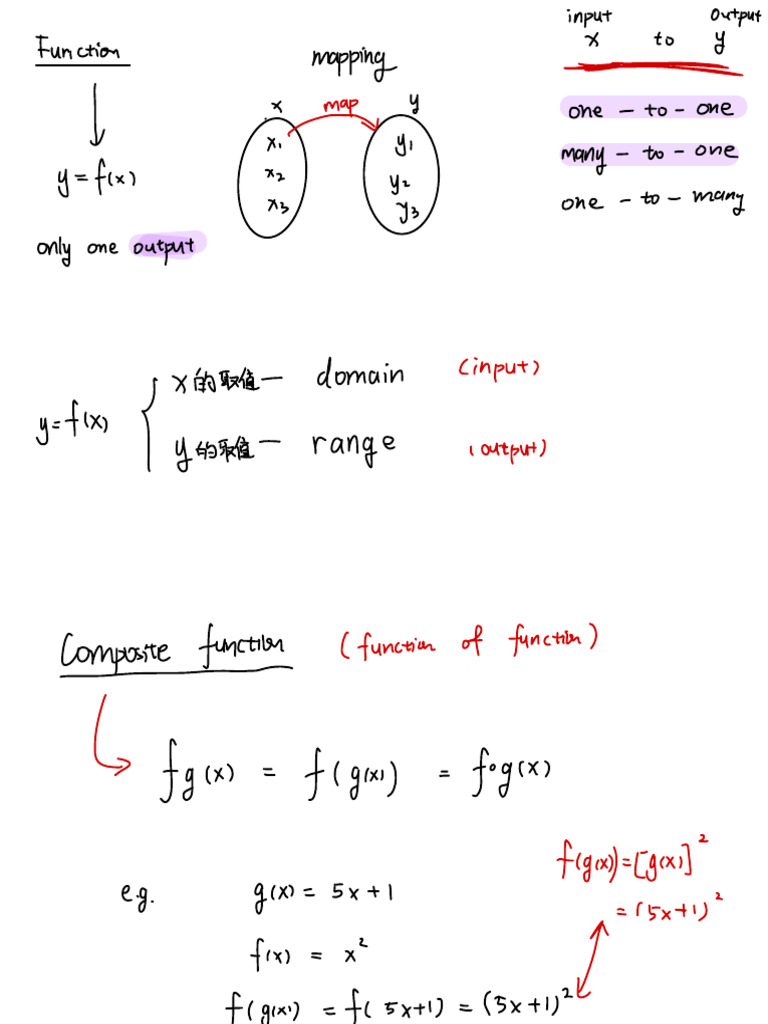 Function
y = f(x)
only one output
mapping
x map y
x₁ y₁
x₂ y₂
x₃ y₃
input output
x to y
one - to - one
many - to - one
one - to - many
y = f(x)
x的取值 — domain (input)
y的取值 — range (output)
Composite function (function of function)
fg(x) = f(g(x)) = f∘g(x)
e.g. g(x) = 5x+1
f(x) = x²
f(g(x)) = f(5x+1) = (5x+1)²
f(g(x)) = [g(x)]²
= (5x+1)²